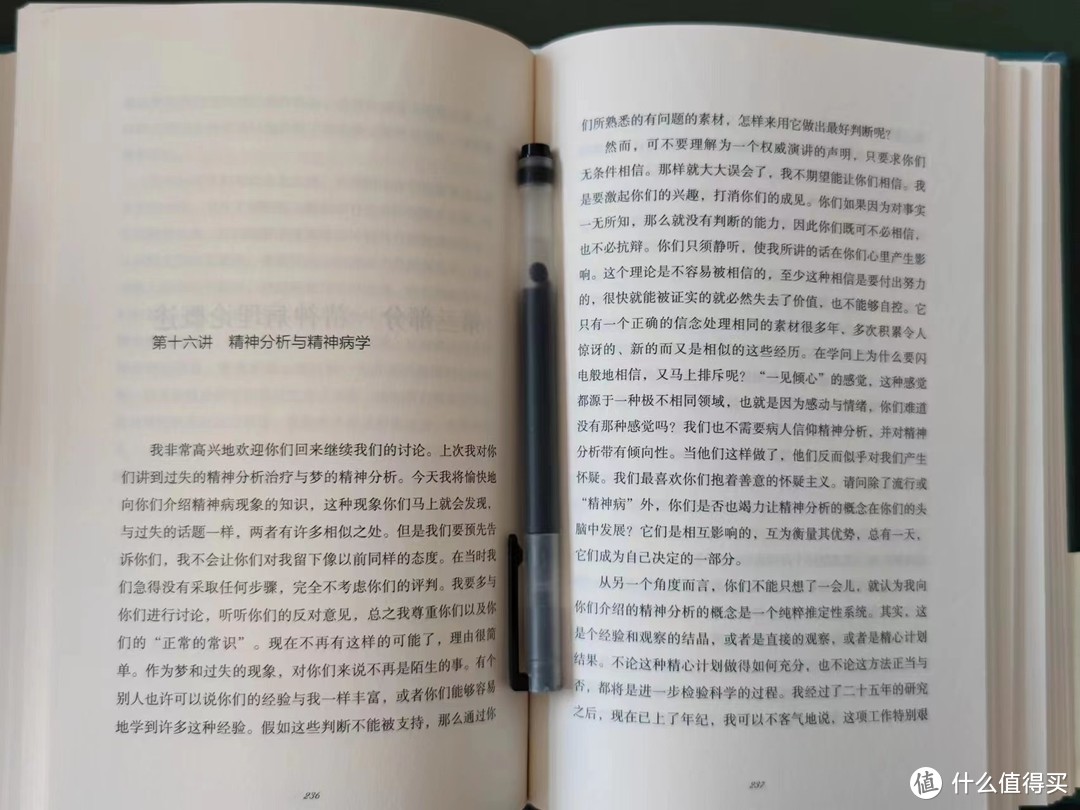 第十六讲 精神分析与精神病学
我非常高兴地欢迎你们回来继续我们的讨论。上次我对你
们讲到过失的精神分析治疗与梦的精神分析。今天我将愉快地
向你们介绍精神病现象的知识，这种现象你们马上就会发现，
与过失的话题一样，两者有许多相似之处。但是我们要预先告
诉你们，我不会让你们对我留下像以前同样的态度。在当时我
们急得没有采取任何步骤，完全不考虑你们的评判。我要多与
你们进行讨论，听听你们的反对意见，总之我尊重你们以及你
们的“正常的常识”。现在不再有这样的可能了，理由很简
单。作为梦和过失的现象，对你们来说不再是陌生的事。有个
别人也许可以说你们的经验与我一样丰富，或者你们能够容易
地学到许多这种经验。假如这些判断不能被支持，那么通过你
236
们所熟悉的有问题的素材，怎样来用它做出最好判断呢？
然而，可不要理解为一个权威演讲的声明，只要求你们
无条件相信。那样就大大误会了，我不期望能让你们相信。我
是要激起你们的兴趣，打消你们的成见。你们如果因为对事实
一无所知，那么就没有判断的能力，因此你们既可不必相信，
也不必抗辩。你们只须静听，使我所讲的话在你们心里产生影
响。这个理论是不容易被相信的，至少这种相信是要付出努力
的，很快就能被证实的就必然失去了价值，也不能够自控。它
只有一个正确的信念处理相同的素材很多年，多次积累令人
惊讶的、新的而又是相似的这些经历。在学问上为什么要闪
电般地相信，又马上排斥呢？“一见倾心”的感觉，这种感觉
都源于一种极不相同领域，也就是因为感动与情绪，你们难道
没有那种感觉吗？我们也不需要病人信仰精神分析，并对精神
分析带有倾向性。当他们这样做了，他们反而似乎对我们产生
怀疑。我们最喜欢你们抱着善意的怀疑主义。请问除了流行或
“精神病”外，你们是否也竭力让精神分析的概念在你们的头
脑中发展？它们是相互影响的，互为衡量其优势，总有一天，
它们成为自己决定的一部分。
从另一个角度而言，你们不能只想了一会儿，就认为我向
你们介绍的精神分析的概念是一个纯粹推定性系统。其实、这
是个经验和观察的结晶，或者是直接的观察，或者是精心计划
结果。不论这种精心计划做得如何充分，也不论这方法正当与
否，都将是进一步检验科学的过程。我经过了二十五年的研究
之后，现在已上了年纪，我可以不客气地说，这项工作特别艰
237
值 什么值得买